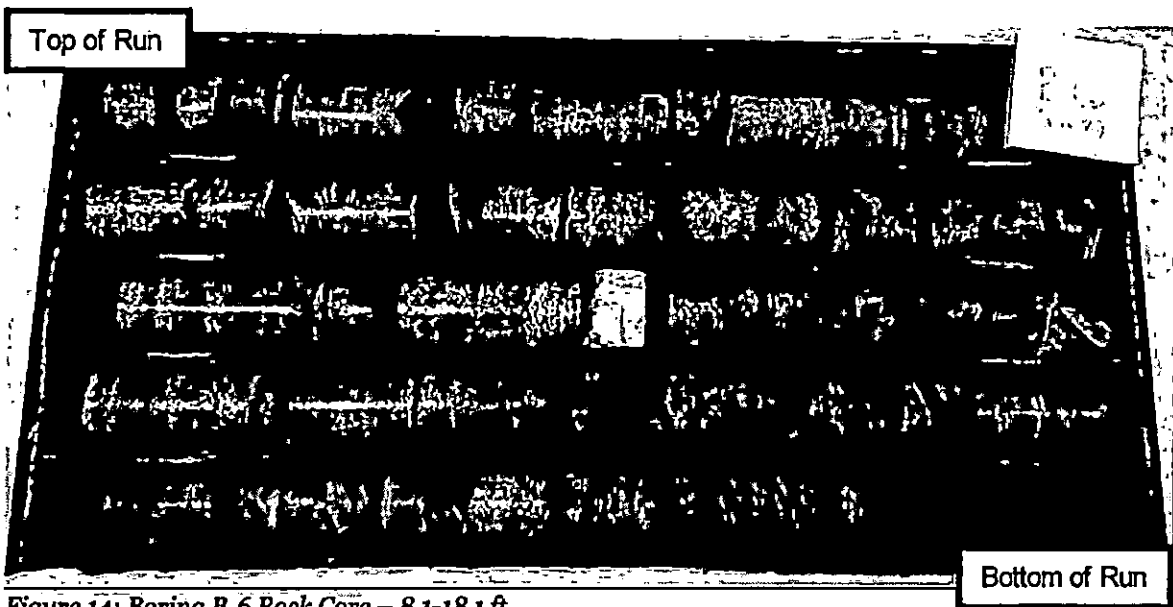 Top of Run
Bottom of Run
Figure 14: Boring B-6 Rock Core – 8.1-18.1 ft